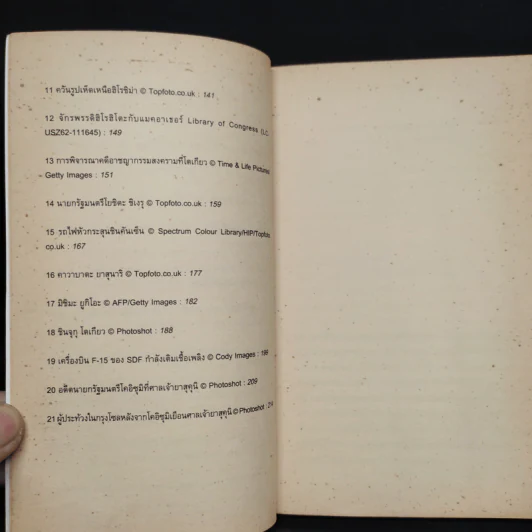 11 ควันรูปเห็ดเหนือฮิโรชิม่า © Topfoto.co.uk : 141
12 จักรพรรดิฮิโรฮิโตะกับแมคอาเธอร์ Library of Congress (LC-
USZ62-111645) : 149
13 การพิจารณาคดีอาชญากรรมสงครามที่โตเกียว © Time & Life Pictures/
Getty Images : 151
14 นายกรัฐมนตรีโยชิดะ ชิเงรุ © Topfoto.co.uk : 159
15 รถไฟหัวกระสุนชินคันเซ็น © Spectrum Colour Library/HIP/Topfoto.
co.uk : 167
16 คาวาบาตะ ยาสุนาริ © Topfoto.co.uk : 177
17 มิชิมะ ยูกิโอะ © AFP/Getty Images : 182
18 ชินจูกุ โตเกียว © Photoshot : 188
19 เครื่องบิน F-15 ของ SDF กำลังเติมเชื้อเพลิง © Cody Images : 199
20 อดีตนายกรัฐมนตรีโคอิซุมิที่ศาลเจ้ายาสุคุนิ © Photoshot : 209
21 ผู้ประท้วงในกรุงโซลหลังจากโคอิซุมิเยือนศาลเจ้ายาสุคุนิ © Photoshot :